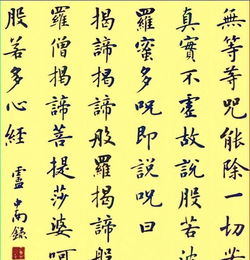 無等等咒能除一切苦
真實不虛故說般若波
羅蜜多咒即說咒曰
揭諦揭諦般羅揭諦般
羅僧揭諦菩提莎婆呵
般若多心經